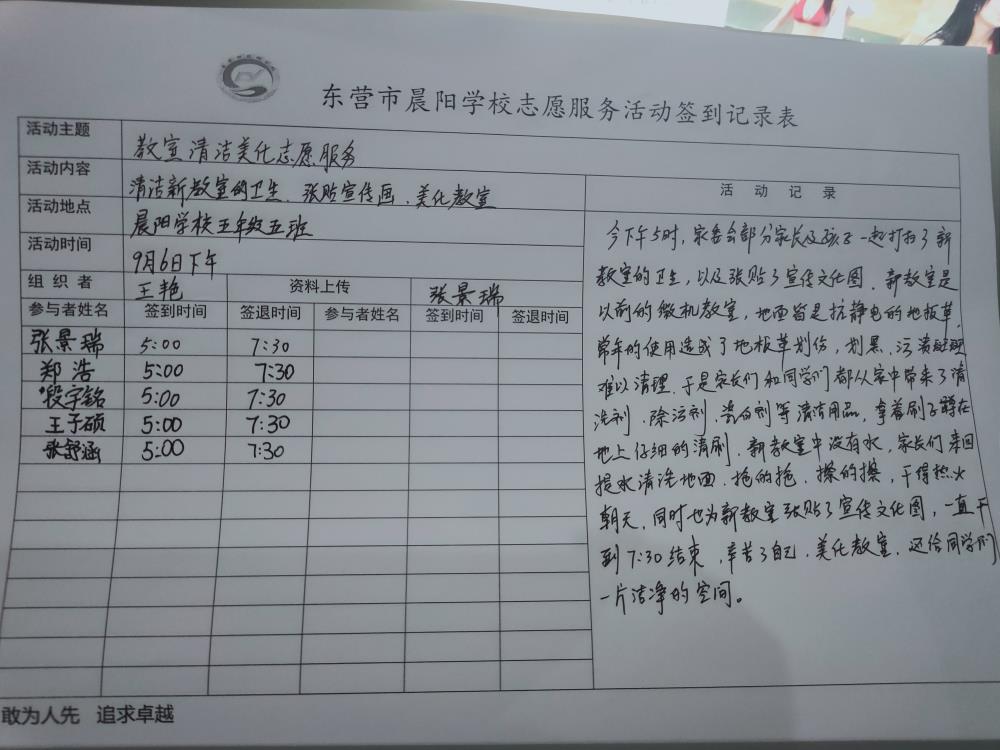 东营市晨阳学校志愿服务活动签到记录表
活动主题 教室清洁美化志愿服务
活动内容 清洁新教室的卫生、张贴宣传画、美化教室
活动地点 晨阳学校五年级五班
活动时间 9月6日下午
组织者 王艳 资料上传 张景瑞
参与者姓名 签到时间 签退时间 参与者姓名 签到时间 签退时间
张景瑞 5:00 7:30
郑浩 5:00 7:30
段宇铭 5:00 7:30
王子硕 5:00 7:30
张舒涵 5:00 7:30
活动记录
今下午5时,家委会部分家长及孩子一起打扫了新
教室的卫生,以及张贴了宣传文化图、新教室是
以前的微机教室,地面皆是抗静电的地板革,
常年的使用造成了地板革划伤,划黑、污渍
难以清理、于是家长们和同学们都从家中带来了清
洗剂、除污剂、等清洁用品,拿着刷子蹲在
地上仔细的清刷、新教室中没有水,家长们来回
提水清洗地面、拖的拖、擦的擦,干得热火
朝天,同时也为新教室张贴了宣传文化图,一直干
到7:30结束,辛苦了自己、美化教室、还给同学们
一片洁净的空间。
敢为人先 追求卓越